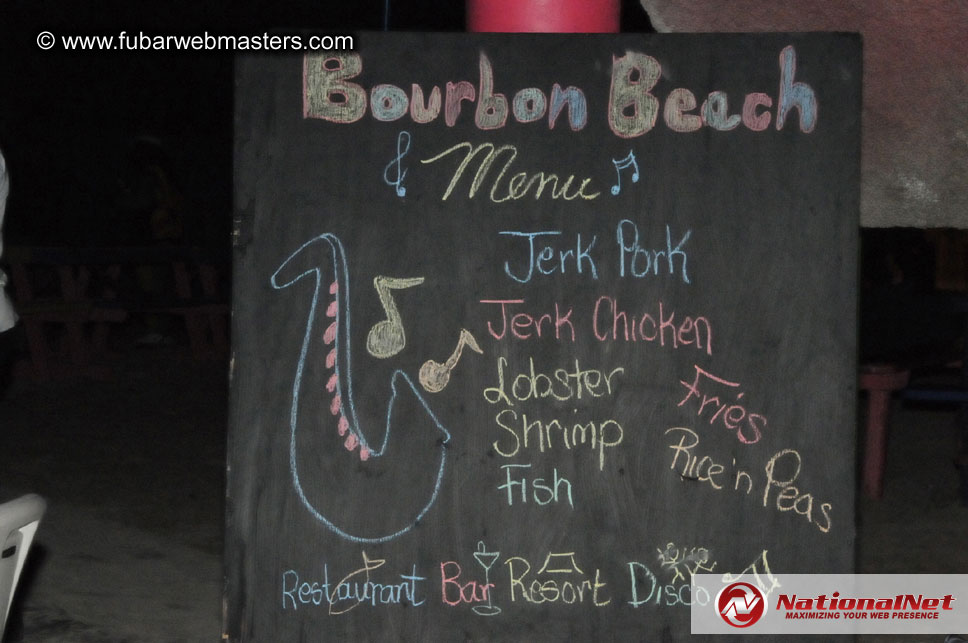 © www.fubarwebmasters.com
Bourbon Beach
Menu
Jerk Pork
Jerk Chicken
Lobster
Shrimp
Fish
Fries
Rice 'n Peas
Restaurant Bar Resort Disco
NationalNet
MAXIMIZING YOUR WEB PRESENCE